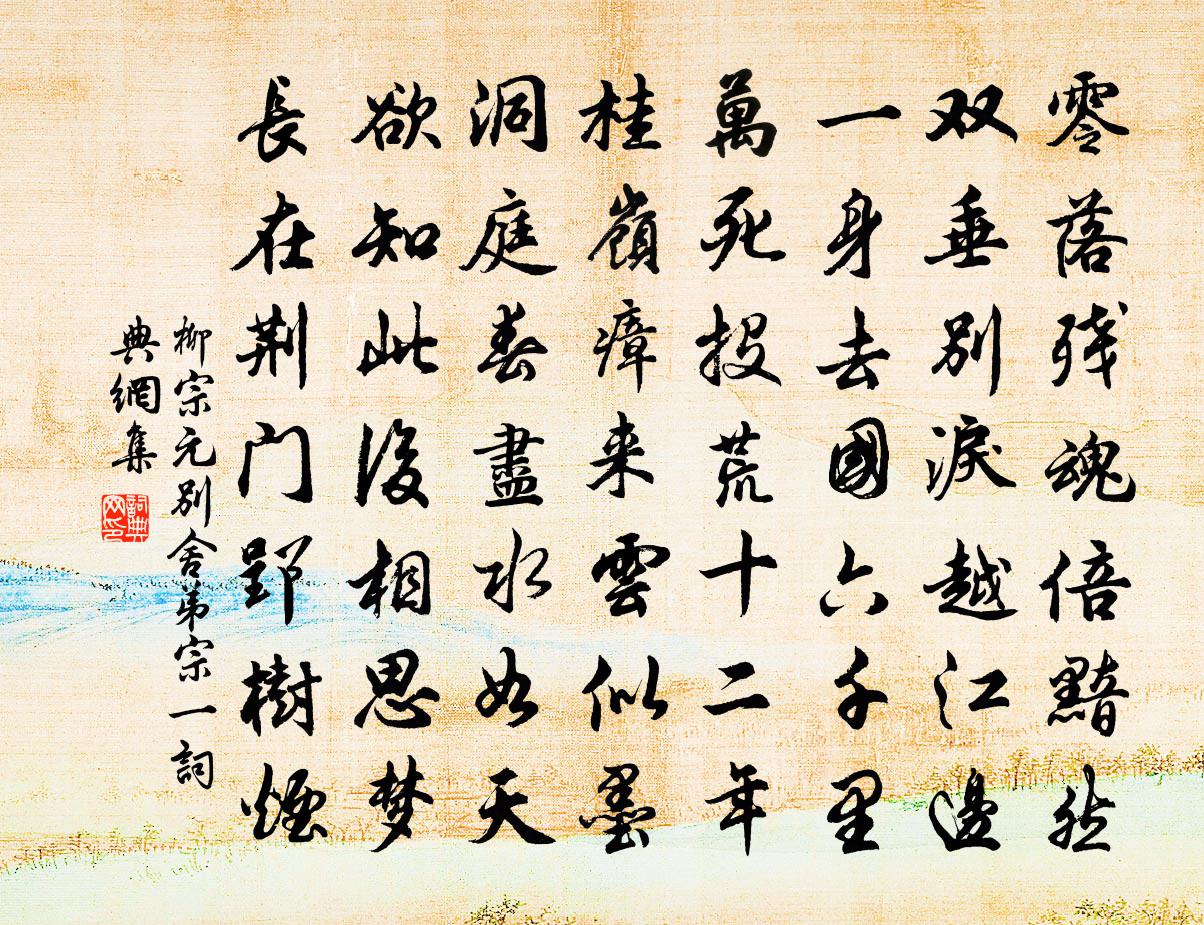 零落残魂倍黯然
双垂别淚越江邊
一身去國六千里
萬死投荒十二年
桂嶺瘴来雲似墨
洞庭春盡水如天
欲知此後相思梦
長在荆门郢樹煙
柳宗元别舍弟宗一詞
典網集
詞典
网印